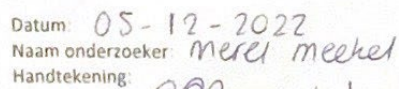 Datum: 05-12-2022
Naam onderzoeker: Merel Meekel
Handtekening: